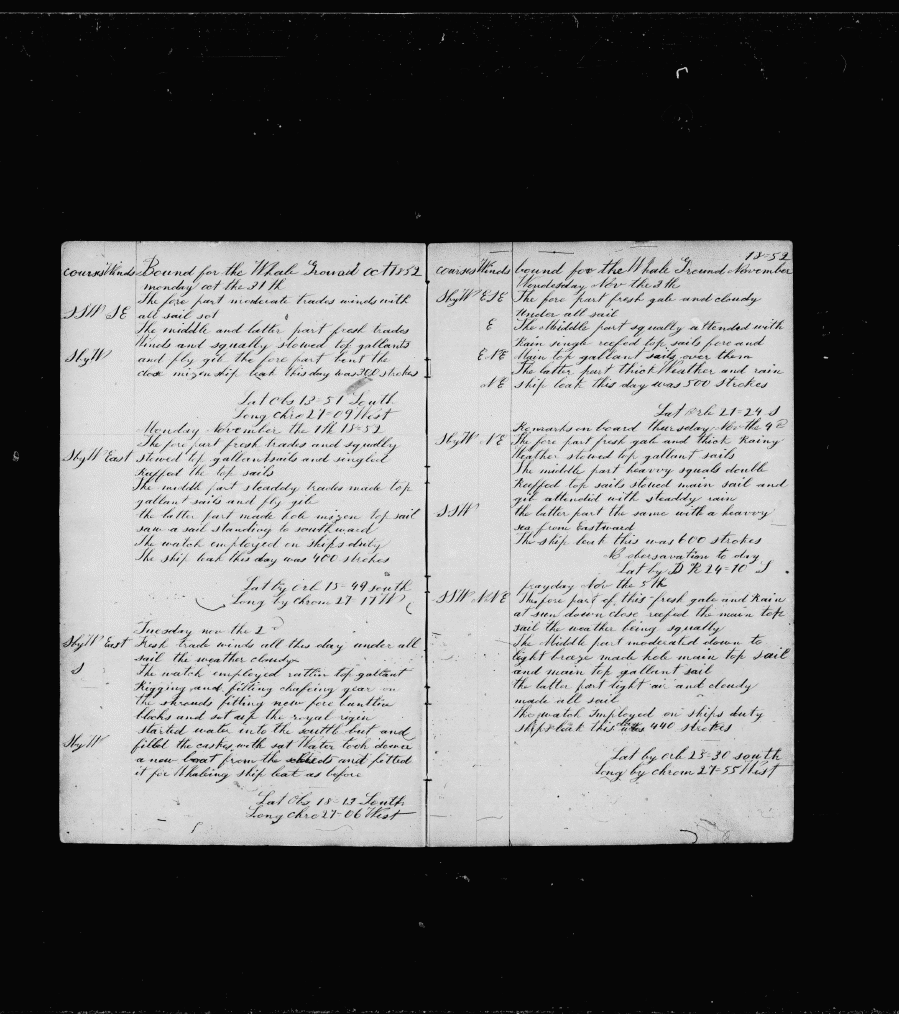 courses Winds Bound for the Whale Ground oct 1852
monday oct the 31th
The fore part moderate trades winds with
SSW SE all sail sot
The middle and latter part fresh trades
Winds and squally stowed top gallants
SbyW and fly gib the fore part bent the
close mizen ship leak this day was 300 strokes
Lat Obs 13=51 South
Long chro 27=09 West
Monday November the 1th 18=52
The fore part fresh trades and squally
SbyW East stowed top gallantsails and singled
Reeffed the top sails
The middle part steaddy trades made top
gallant sails and fly gib
the latter part made hole mizen top sail
saw a sail standing to southward
The watch employed on ships duty
The ship leak this day was 400 strokes
Lat by orb 15=49 south
Long by chrom 27=17 W
Tuesday nov the 2
SbyW East Fresh trade winds all this day under all
sail the weather cloudy
S The watch employed rattlin top gallant
Rigging and fitting chafeing gear on
the shrouds fitting new fore buntlin
blocks and set up the royal rigin
started water into the scuttle but and
SbyW filled the caskes with sat Water took down
a new boat from the and fitted
it for Whaleing ship leat as before
Lat Obs 18=13 South
Long chro 27=06 West
18=52
courses Winds bound for the Whale Ground November
Wendesday Nov the 3th
SbyW ESE The fore part fresh gale and cloudy
Under all sail
E The Middle part squally attended with
Rain single reefed top sails fore and
ENE Main top gallant sails over them
The latter part thick Weather and rain
NE ship leak this day was 500 strokes
Lat orb 21=24 S
Remarks on board thursday Nov the 4
SbyW NE The fore part fresh gale and thick Rainy
Weather stowed top gallant sails
The middle part heavvy squals double
Reeffed top sails stowed main sail and
gib attended with steaddy rain
SSW the latter part the same with a heavvy
sea from Eastward
The ship leak this was 600 strokes
No obersavation to day
Lat by D R 24=10 S
frayday Nov the 5th
SSW NNE The fore part of this fresh gale and Rain
at sun down close reefed the main top
sail the weather being squally
The Middle part moderated down to
light breaze made hole main top sail
and main top gallant sail
the latter part light air and cloudy
made all sail
the watch Imployed on ships duty
ships leak this day was 440 strokes
Lat by orb 25=30 south
Long by chrom 27=55 West